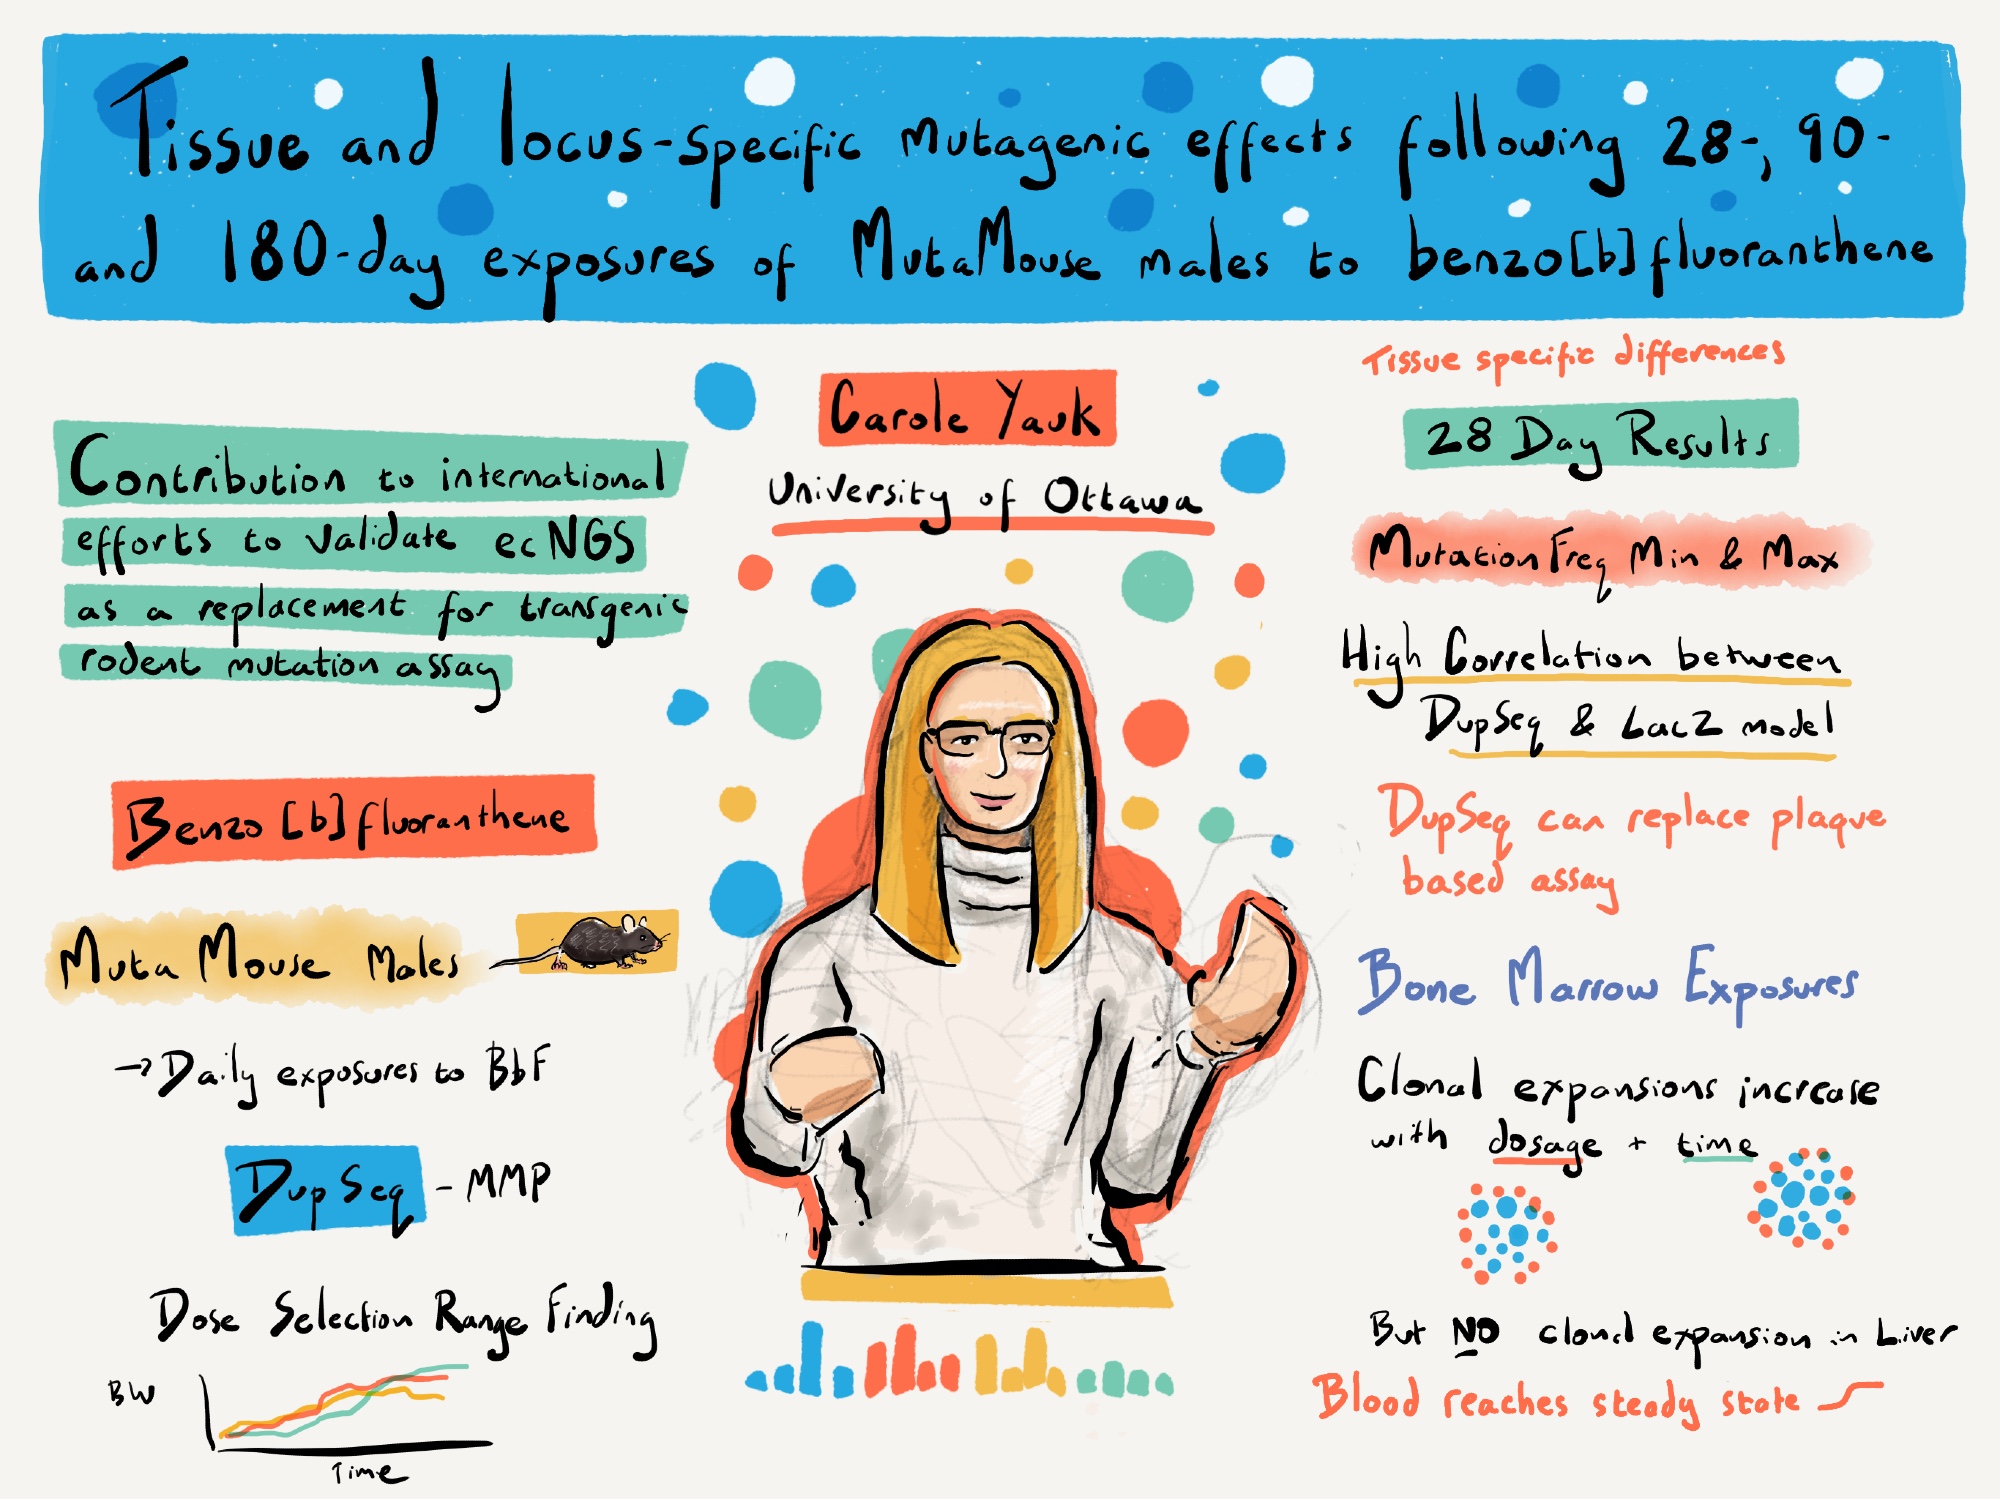 Tissue and locus-specific Mutagenic effects following 28-, 90-
and 180-day exposures of MutaMouse males to benzo[b]fluoranthene
Carole Yauk
University of Ottawa
Contribution to international
efforts to validate ecNGS
as a replacement for transgenic
rodent mutation assay
Benzo [b] fluoranthene
Muta Mouse Males
→ Daily exposures to BbF
DupSeq - MMP
Dose Selection Range Finding
BW
Time
Tissue specific differences
28 Day Results
Mutation Freq Min & Max
High Correlation between
DupSeq & LacZ model
DupSeq can replace plaque
based assay
Bone Marrow Exposures
Clonal expansions increase
with dosage + time
But NO clonal expansion in Liver
Blood reaches steady state